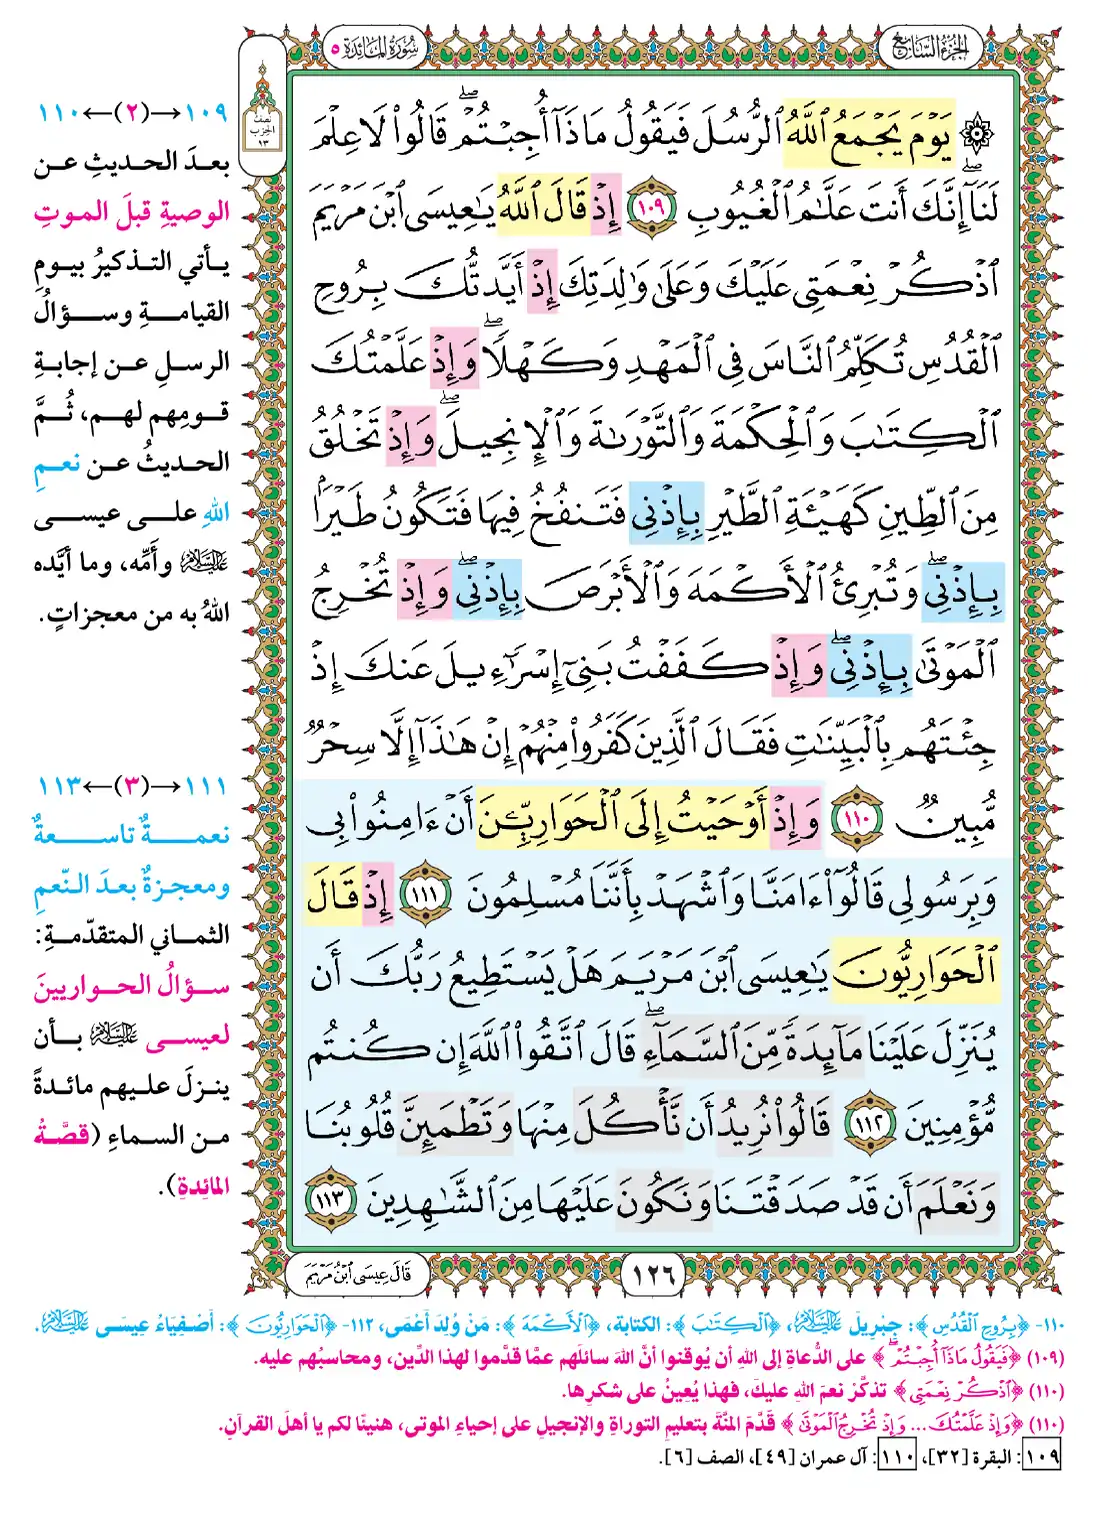 الجزء السابع
سورة المائدة ٥
نصف
الحزب
١٣
۞ يَوْمَ يَجْمَعُ ٱللَّهُ ٱلرُّسُلَ فَيَقُولُ مَاذَآ أُجِبْتُمْۖ قَالُوا۟ لَا عِلْمَ
لَنَآۖ إِنَّكَ أَنتَ عَلَّٰمُ ٱلْغُيُوبِ ١٠٩ إِذْ قَالَ ٱللَّهُ يَٰعِيسَى ٱبْنَ مَرْيَمَ
ٱذْكُرْ نِعْمَتِى عَلَيْكَ وَعَلَىٰ وَٰلِدَتِكَ إِذْ أَيَّدتُّكَ بِرُوحِ
ٱلْقُدُسِ تُكَلِّمُ ٱلنَّاسَ فِى ٱلْمَهْدِ وَكَهْلًاۖ وَإِذْ عَلَّمْتُكَ
ٱلْكِتَٰبَ وَٱلْحِكْمَةَ وَٱلتَّوْرَىٰةَ وَٱلْإِنجِيلَۖ وَإِذْ تَخْلُقُ
مِنَ ٱلطِّينِ كَهَيْـَٔةِ ٱلطَّيْرِ بِإِذْنِى فَتَنفُخُ فِيهَا فَتَكُونُ طَيْرًۢا
بِإِذْنِىۖ وَتُبْرِئُ ٱلْأَكْمَهَ وَٱلْأَبْرَصَ بِإِذْنِىۖ وَإِذْ تُخْرِجُ
ٱلْمَوْتَىٰ بِإِذْنِىۖ وَإِذْ كَفَفْتُ بَنِىٓ إِسْرَٰٓءِيلَ عَنكَ إِذْ
جِئْتَهُم بِٱلْبَيِّنَٰتِ فَقَالَ ٱلَّذِينَ كَفَرُوا۟ مِنْهُمْ إِنْ هَٰذَآ إِلَّا سِحْرٌ
مُّبِينٌ ١١٠ وَإِذْ أَوْحَيْتُ إِلَى ٱلْحَوَارِيِّـۧنَ أَنْ ءَامِنُوا۟ بِى
وَبِرَسُولِى قَالُوٓا۟ ءَامَنَّا وَٱشْهَدْ بِأَنَّنَا مُسْلِمُونَ ١١١ إِذْ قَالَ
ٱلْحَوَارِيُّونَ يَٰعِيسَى ٱبْنَ مَرْيَمَ هَلْ يَسْتَطِيعُ رَبُّكَ أَن
يُنَزِّلَ عَلَيْنَا مَآئِدَةً مِّنَ ٱلسَّمَآءِۖ قَالَ ٱتَّقُوا۟ ٱللَّهَ إِن كُنتُم
مُّؤْمِنِينَ ١١٢ قَالُوا۟ نُرِيدُ أَن نَّأْكُلَ مِنْهَا وَتَطْمَئِنَّ قُلُوبُنَا
وَنَعْلَمَ أَن قَدْ صَدَقْتَنَا وَنَكُونَ عَلَيْهَا مِنَ ٱلشَّٰهِدِينَ ١١٣
١٢٦
قَالَ عِيسَى ٱبْنُ مَرْيَمَ
١٠٩→(٢)←١١٠
بعدَ الحديثِ عن
الوصيةِ قبلَ الموتِ
يأتي التذكيرُ بيومِ
القيامةِ وسؤالُ
الرسلِ عن إجابةِ
قومِهم لهم، ثُمَّ
الحديثُ عن نعمِ
اللهِ على عيسى
عليه السلام وأمِّه، وما أيَّده
اللهُ به من معجزاتٍ.
١١١→(٣)←١١٣
نعمةٌ تاسعةٌ
ومعجزةٌ بعدَ النّعمِ
الثماني المتقدّمةِ:
سؤالُ الحواريينَ
لعيسى عليه السلام بأن
ينزلَ عليهم مائدةً
من السماءِ (قصَّةُ
المائدةِ).
١١٠- ﴿بِرُوحِ ٱلْقُدُسِ﴾: جِبْرِيلَ عليه السلام، ﴿ٱلْكِتَٰبَ﴾: الكتابة، ﴿ٱلْأَكْمَهَ﴾: مَنْ وُلِدَ أَعْمَى، ١١٢- ﴿ٱلْحَوَارِيُّونَ﴾: أَصْفِيَاءُ عِيسَى عليه السلام.
(١٠٩) ﴿فَيَقُولُ مَاذَآ أُجِبْتُمْۖ﴾ على الدُّعاةِ إلى اللهِ أن يُوقنوا أنَّ اللهَ سائلُهم عمَّا قدَّموا لهذا الدِّين، ومحاسبُهم عليه.
(١١٠) ﴿ٱذْكُرْ نِعْمَتِى﴾ تذكَّرْ نعمَ اللهِ عليكَ، فهذا يُعينُ على شكرِها.
(١١٠) ﴿وَإِذْ عَلَّمْتُكَ ... وَإِذْ تُخْرِجُ ٱلْمَوْتَىٰ﴾ قدَّمَ المنَّةَ بتعليمِ التوراةِ والإنجيلِ على إحياءِ الموتى، هنيئًا لكم يا أهلَ القرآنِ.
١٠٩: البقرة [٣٢]، ١١٠: آل عمران [٤٩]، الصف [٦].